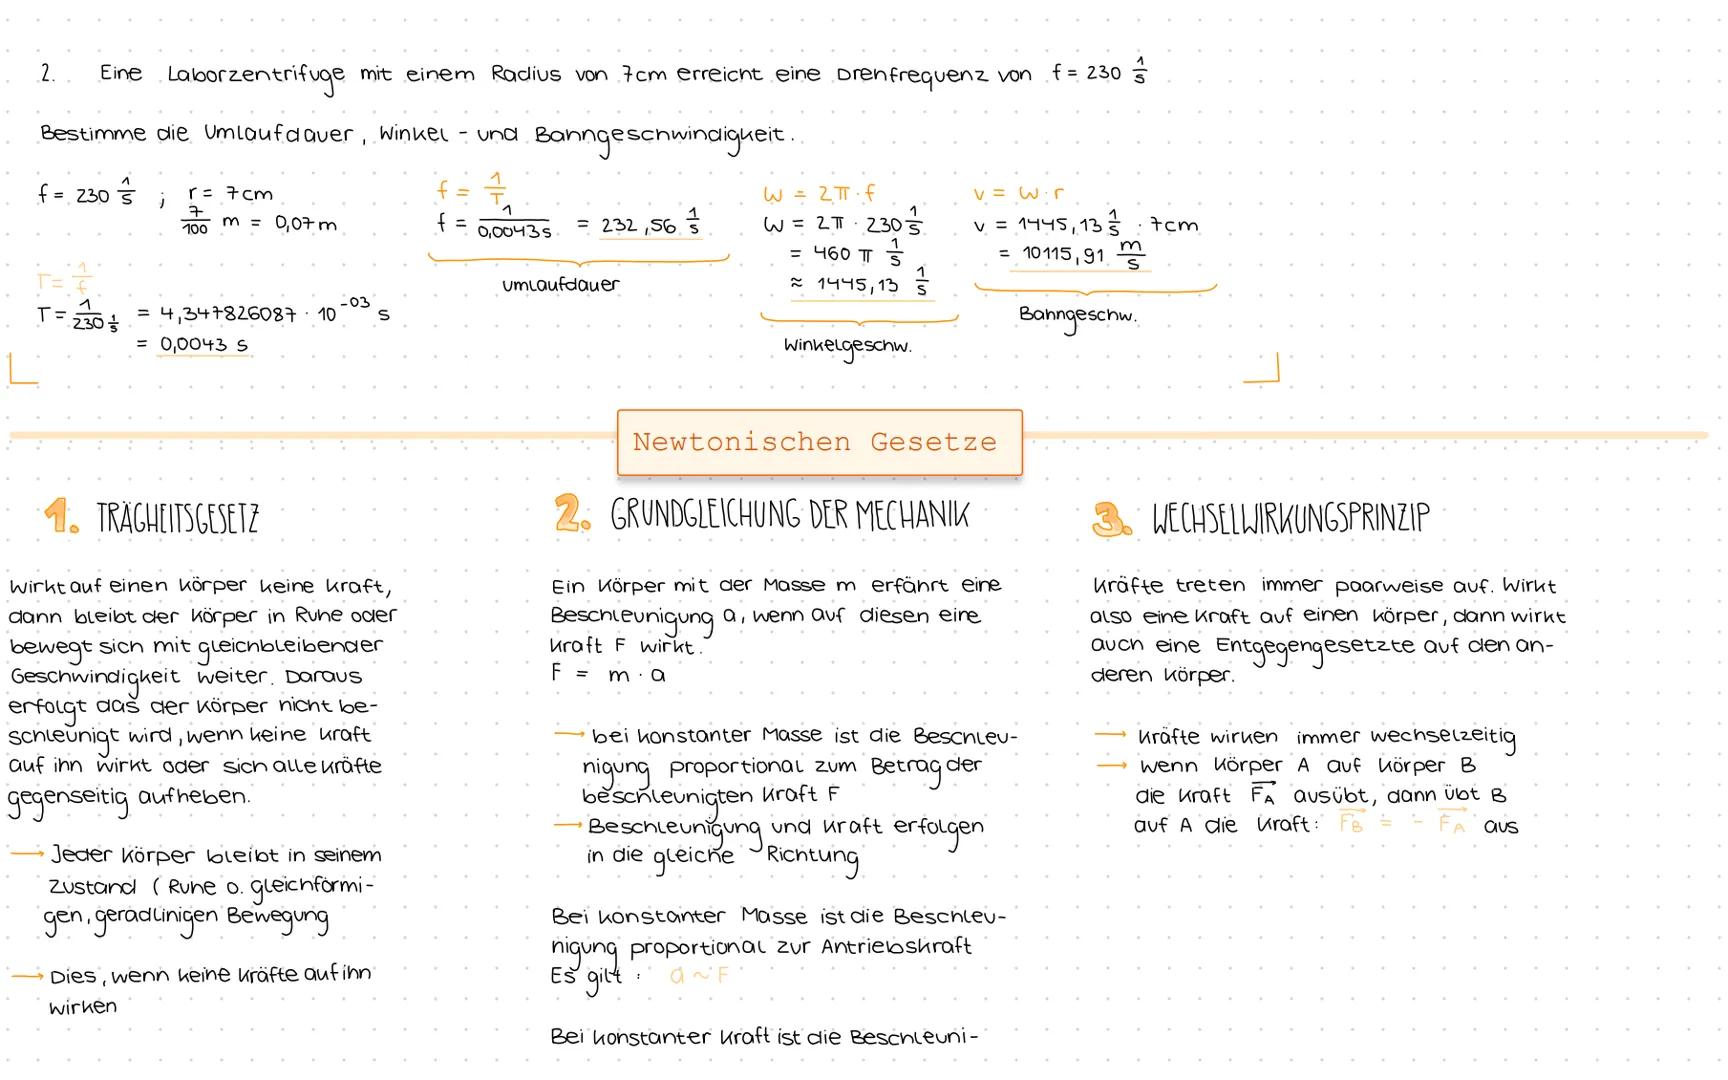 2. Eine Laborzentrifuge mit einem Radius von 7cm erreicht eine Drehfrequenz von f = 230 1/s
Bestimme die Umlaufdauer, Winkel - und Bahngeschwindigkeit.
f = 230 1/s ; r = 7cm
7/100 m = 0,07m
T = 1/f
T = 1/(230 1/s) = 4,347826087 · 10^-03 s
= 0,0043 s
f = 1/T
f = 1/0,0043s = 232,56 1/s
Umlaufdauer
W = 2π · f
W = 2π · 230 1/s
= 460 π 1/s
≈ 1445,13 1/s
Winkelgeschw.
v = W · r
v = 1445,13 1/s · 7cm
= 10115,91 m/s
Bahngeschw.
Newtonischen Gesetze
1. TRÄGHEITSGESETZ
Wirkt auf einen Körper keine Kraft,
dann bleibt der Körper in Ruhe oder
bewegt sich mit gleichbleibender
Geschwindigkeit weiter. Daraus
erfolgt das der Körper nicht be-
schleunigt wird, wenn keine Kraft
auf ihn wirkt oder sich alle Kräfte
gegenseitig aufheben.
→ Jeder Körper bleibt in seinem
Zustand ( Ruhe o. gleichförmi-
gen, geradlinigen Bewegung
→ Dies, wenn keine Kräfte auf ihn
wirken
2. GRUNDGLEICHUNG DER MECHANIK
Ein Körper mit der Masse m erfährt eine
Beschleunigung a, wenn auf diesen eine
Kraft F wirkt.
F = m · a
→ bei konstanter Masse ist die Beschleu-
nigung proportional zum Betrag der
beschleunigten Kraft F
→ Beschleunigung und Kraft erfolgen
in die gleiche Richtung
Bei konstanter Masse ist die Beschleu-
nigung proportional zur Antriebskraft
Es gilt : a ~ F
Bei konstanter Kraft ist die Beschleuni-
3. WECHSELWIRKUNGSPRINZIP
Kräfte treten immer paarweise auf. Wirkt
also eine Kraft auf einen Körper, dann wirkt
auch eine Entgegengesetzte auf den an-
deren Körper.
→ Kräfte wirken immer wechselzeitig
→ wenn Körper A auf Körper B
die Kraft F⃗A ausübt, dann übt B
auf A die Kraft: F⃗B = - F⃗A aus